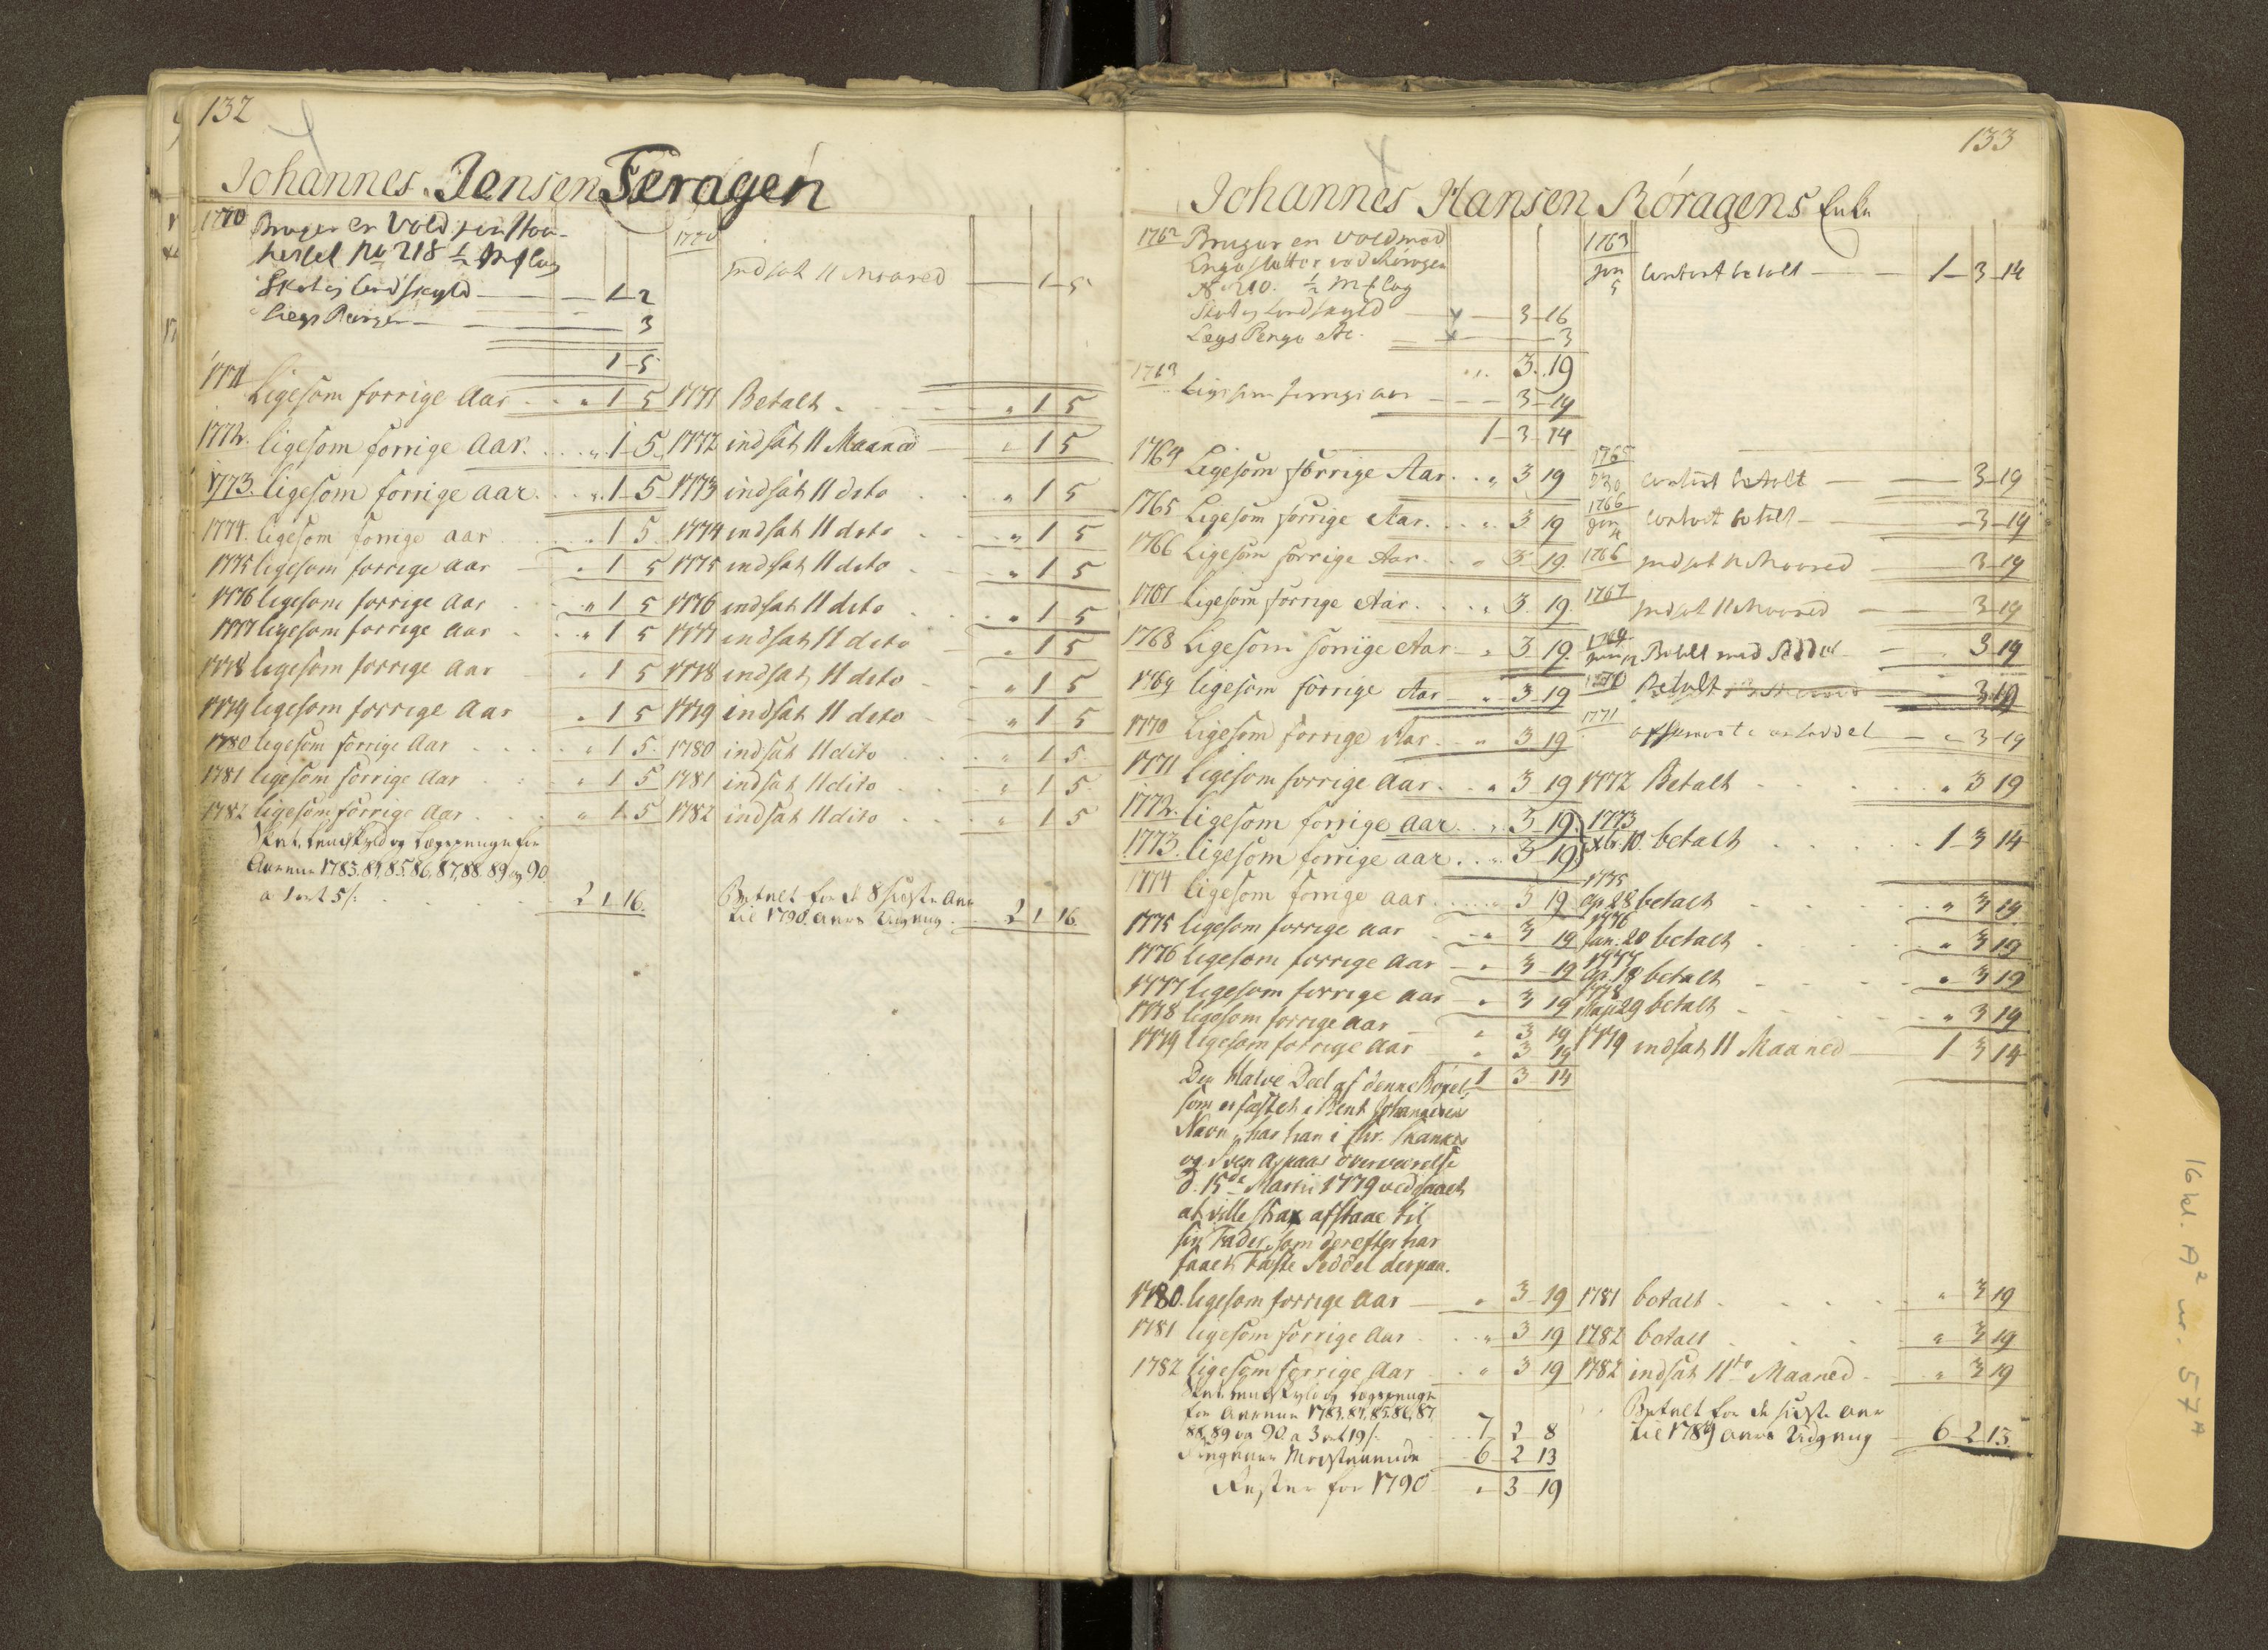 132
Johannes Jensen Feragen
1770 Bruger en Vold
No 218 ½ Mßlag
Skat og Landskyld — 1-2
Legs Penge — 3
1-5
1770 Indsat 11 Maaned — 1-5
1771 Ligesom forrige Aar " 1 5 1771 Betalt " 1 5
1772. ligesom forrige aar. " 1-5 1772 indsat 11 Maaned " 1 5
1773. ligesom forrige aar. " 1-5 1773 indsat 11 dito " 1 5
1774. ligesom forrige aar " 1 5 1774 indsat 11 dito " 1 5
1775 ligesom forrige aar " 1 5 1775 indsat 11 dito " 1 5
1776 ligesom forrige Aar " 1 5 1776 indsat 11 dito " 1 5
1777 ligesom forrige aar " 1 5 1777 indsat 11 dito " 1 5
1778 ligesom forrige aar " 1 5 1778 indsat 11 dito " 1 5
1779 ligesom forrige Aar " 1 5 1779 indsat 11 dito " 1 5
1780 ligesom forrige Aar " 1 5 1780 indsat 11 dito " 1 5
1781 ligesom forrige Aar " 1 5 1781 indsat 11 dito " 1 5
1782 ligesom forrige Aar " 1 5 1782 indsat 11 dito " 1 5
Skat, Landskyld og Lægspenge for
Aarene 1783, 84, 85, 86, 87, 88, 89 og 90.
a 1 ort 5/: 2 1 16.
Betalt for de 8 sidste Aar
til 1790 Aars Udgang 2 1 16.
133
Johannes Hansen Röragens Enke
1762 Bruger en Vold med
Engesletter ved Röragen
No 210. ½ Mßlag
Skat og Landskyld — 3-16
Legs Penge etc. — 3
3.19
1763 Jan 5 Contant betalt — 1-3-14
1763 Ligesom forrige aar — 3-19
1-3-14
1764 Ligesom forrige Aar " 3 19 1765 contant betalt — 3-19
1765 Ligesom forrige Aar. " 3 19 1766 Jan Contant betalt — 3-19
1766 Ligesom forrige Aar " 3 19. 1766 Indsat 11 Maaned — 3-19
1767 Ligesom forrige Aar. " 3. 19. 1767 Indsat 11 Maaned — 3-19
1768 Ligesom forrige Aar " 3 19. 1769 Betalt med Seddel — 3 19
1769 ligesom forrige Aar " 3 19 1770 Betalt — 3 19
1770 Ligesom forrige Aar " 3 19 1771 — 3-19
1771 ligesom forrige Aar " 3 19 1772 Betalt " 3 19
1772. ligesom forrige aar " 3 19.
1773. ligesom forrige aar " 3 19 1773 xbr. 10. betalt 1 3 14
1774 ligesom forrige aar 3 19 1775 Ap. 28 betalt " 3 19
1775 ligesom forrige aar " 3 19 1776 Jan. 20 betalt " 3 19
1776 ligesom forrige Aar " 3 19 1777 Ap. 18 betalt " 3 19
1777 ligesom forrige aar " 3 19 1778 Maji 29 betalt " 3 19
1778 ligesom forrige aar " 3 19
1779 ligesom forrige Aar " 3 19 1779 indsat 11 Maaned 1 3 14
1 3 14
Den halve Deel af denne Böxel,
som er fæstet i Bent Johannesen
Navn, har han i Hr. Skanke
og Sven Aspaas Overværelse
d. 15de Martii 1779 vedgaaet
at ville strax afstaae til
sin Fader, som derefter har
faaet Fæste Seddel derpaa.
1780. ligesom forrige Aar " 3 19 1781 betalt " 3 19
1781 ligesom forrige Aar " 3 19 1782 betalt " 3 19
1782 ligesom forrige Aar " 3 19 1782 indsat 11te Maaned " 3 19
Skat, Landskyld og Lægspenge
for Aarene 1783, 84, 85, 86, 87,
88, 89 og 90 a 3 ort 19/: 7 2 8
6 2 13
Rester for 1790 " 3 19
Betalt for de sidste Aar
til 1789 Aars Udgang 6 2 13.
16 kl. A² nr. 57A